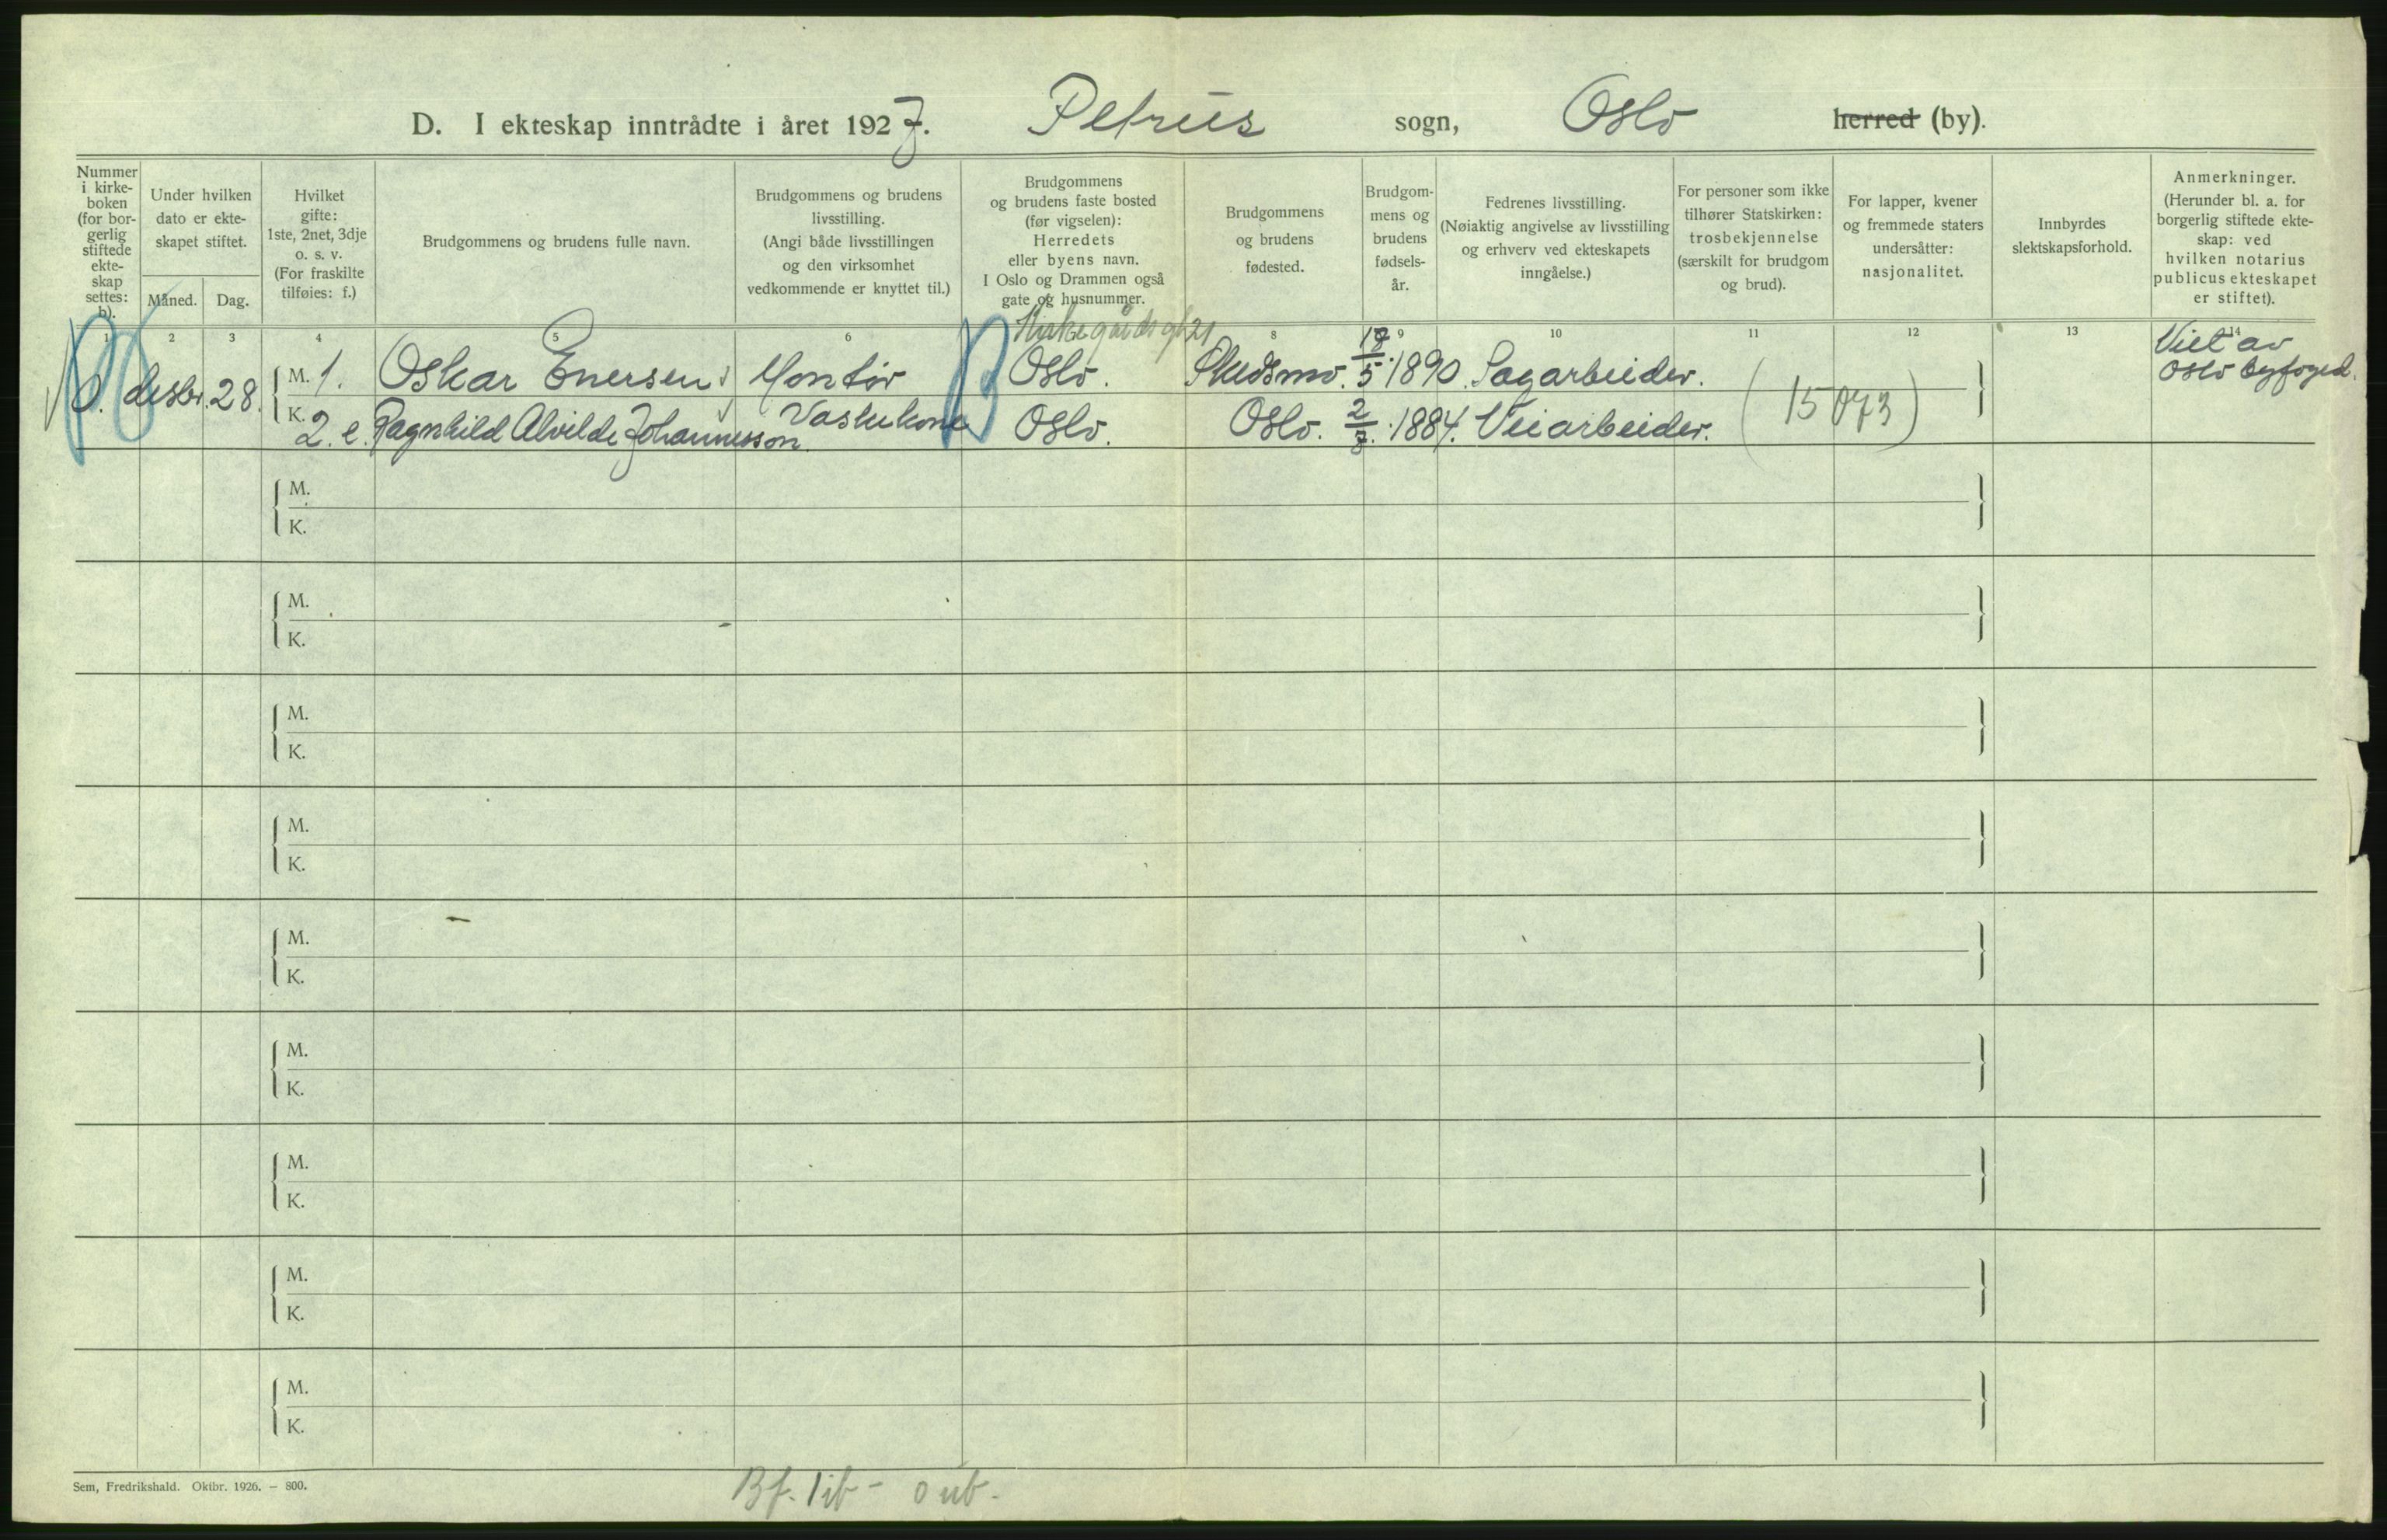 D. I ekteskap inntrådte i året 1927. Petrus sogn, Oslo herred (by).
Nummer i kirke- boken (for bor- gerlig stiftede ekte- skap settes: b).
Under hvilken dato er ekte- skapet stiftet.
Måned. Dag.
Hvilket gifte: 1ste, 2net, 3dje o. s. v. (For fraskilte tilføies: f.)
Brudgommens og brudens fulle navn.
Brudgommens og brudens livsstilling. (Angi både livsstillingen og den virksomhet vedkommende er knyttet til.)
Brudgommens og brudens faste bosted (før vigselen): Herredets eller byens navn. I Oslo og Drammen også gate og husnummer.
Brudgommens og brudens fødested.
Brudgom- mens og brudens fødsels- år.
Fedrenes livsstilling. (Nøiaktig angivelse av livsstilling og erhverv ved ekteskapets inngåelse.)
For personer som ikke tilhører Statskirken: trosbekjennelse (særskilt for brudgom og brud).
For lapper, kvener og fremmede staters undersåtter: nasjonalitet.
Innbyrdes slektskapsforhold.
Anmerkninger. (Herunder bl. a. for borgerlig stiftede ekte- skap: ved hvilken notarius publicus ekteskapet er stiftet).
1 2 3 4 5 6 8 9 10 11 12 13 14
Kirkegårdsgt 21
desbr. 28. M. 1. Oskar Enersen Montør Oslo. Skedsmo. 18/5 1890. Sagarbeider. Viet av Oslo byfoged.
K. 2. e. Ragnhild Alvilde Johannesson. Vaskekone Oslo. Oslo. 2/8. 1884. Veiarbeider. (15073)
M.
K.
M.
K.
M.
K.
M.
K.
M.
K.
M.
K.
M.
K.
M.
K.
M.
K.
Sem, Fredrikshald. Oktbr. 1926. — 800.
Bf. 1 ib - 0 ub.